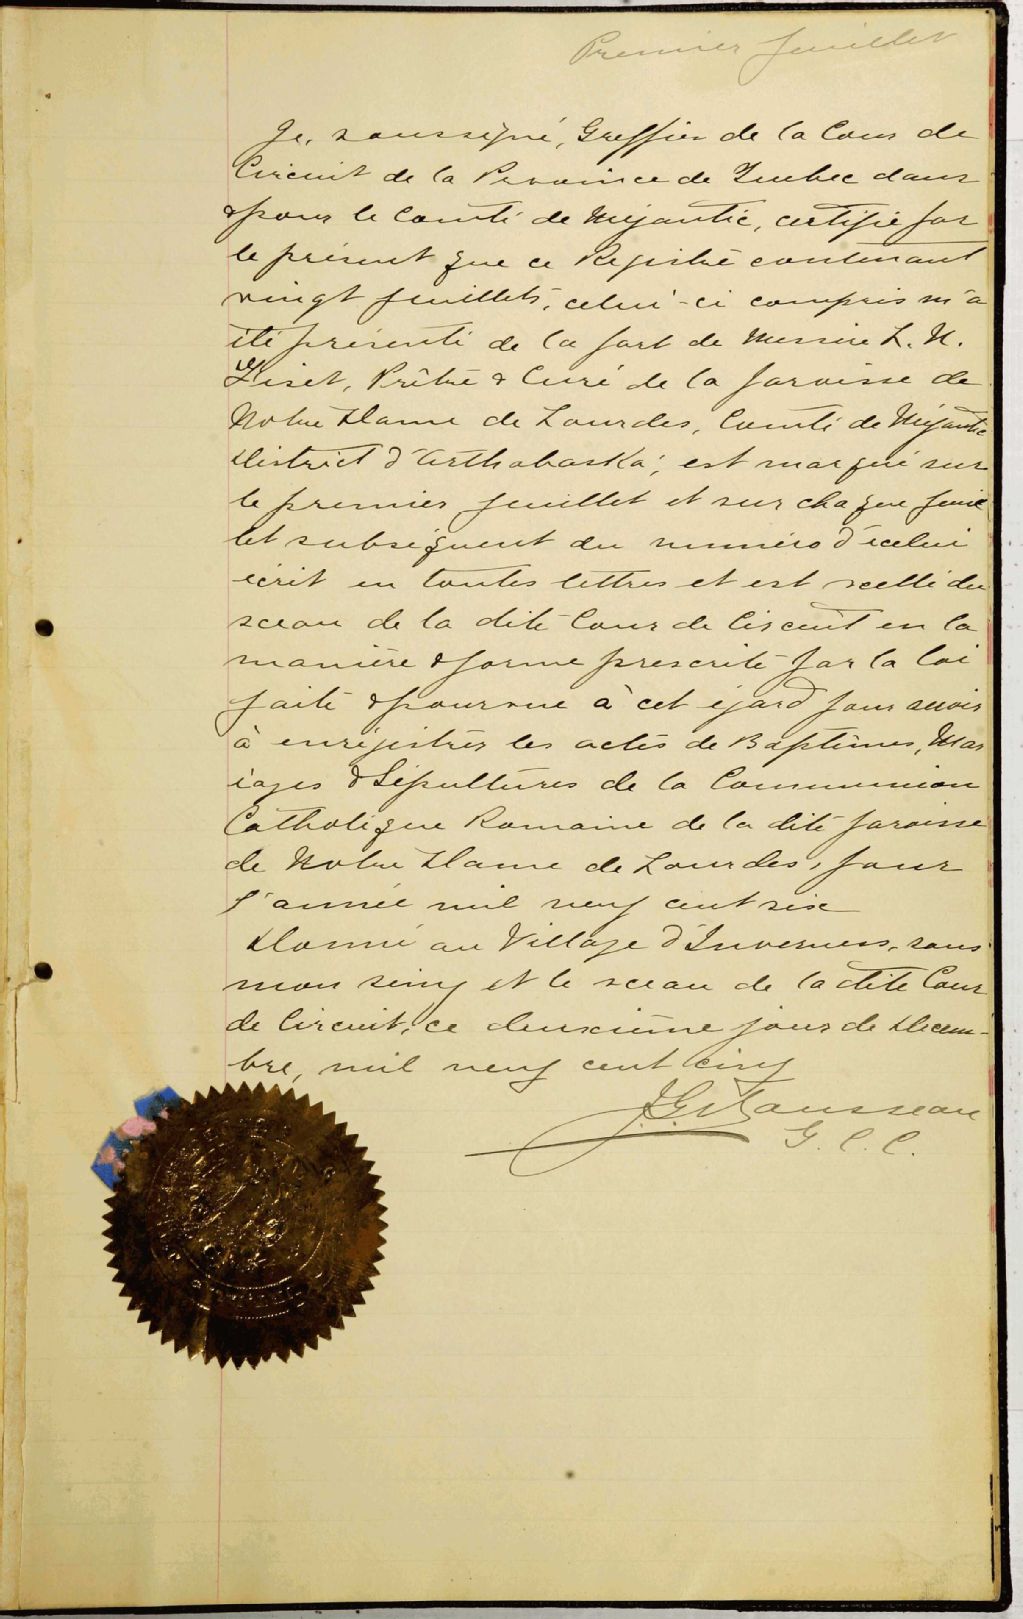 Premier feuillet
Je, soussigné, Greffier de la Cour de
Circuit de la Province de Quebec dans
& pour le Comté de Mégantic, certifie par
le présent que ce Registre contenant
vingt feuillets, celui-ci compris m'a
été présenté de la part de Messire L. N.
Prêtre & Curé de la paroisse de
Notre Dame de Lourdes, Comté de Mégantic
District d'Arthabaska, est marqué sur
le premier feuillet et sur chaque feuil
let subséquent du numéro d'icelui
écrit en toutes lettres et est scellé du
sceau de la dite Cour de Circuit en la
manière & forme prescrite par la loi
faite & pourvue à cet égard pour servir
à enrégistrer les actes de Baptêmes, Mar
iages & Sépultures de la Communion
Catholique Romaine de la dite paroisse
de Notre Dame de Lourdes, pour
l'année mil neuf cent six
Donné au Village d'Inverness, sous
mon seing et le sceau de la dite Cour
de Circuit, ce deuxième jour de Décem-
bre, mil neuf cent cinq
Rousseau
G. C. C.